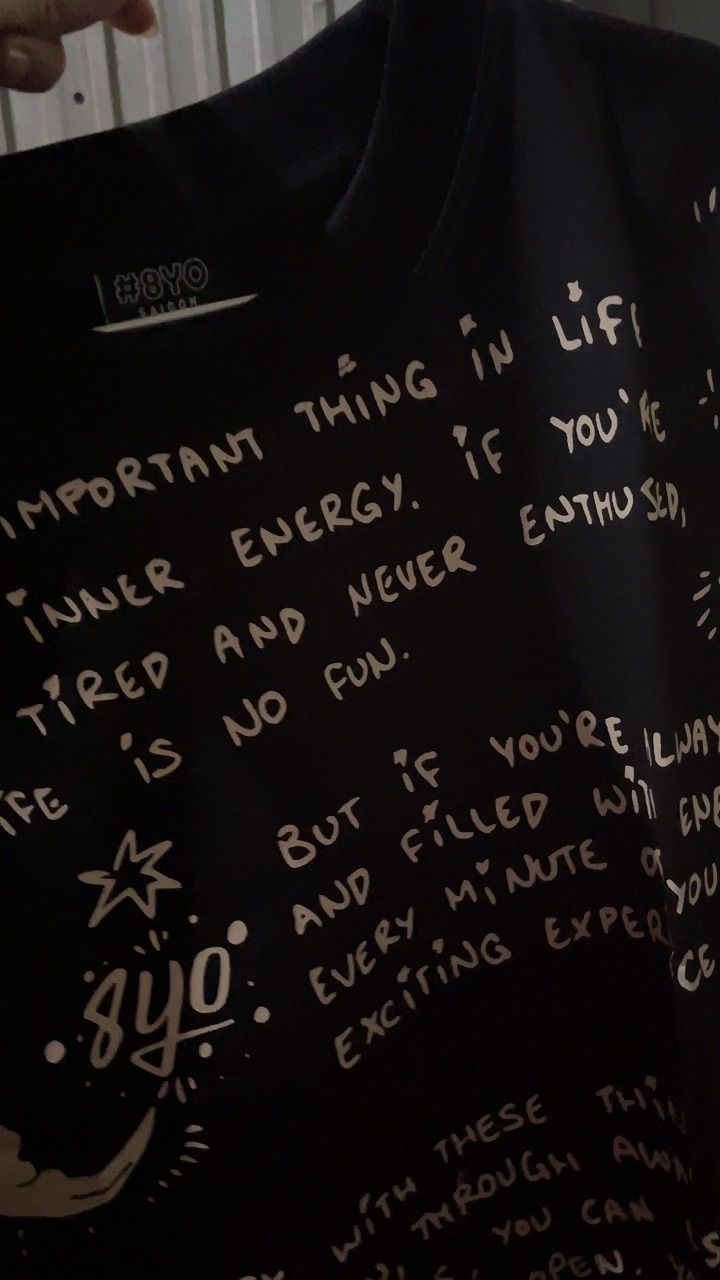 #8YO
SAIGON
IMPORTANT THING IN LIF
INNER ENERGY. IF YOU'RE
TIRED AND NEVER ENTHUSED,
IFE IS NO FUN.
BUT IF YOU'RE ALWAY
AND FILLED WITH ENE
EVERY MINUTE OF YOU
EXCITING EXPER CE
8yo
WITH THESE THIN
THROUGH AWA
YOU CAN
OPEN.